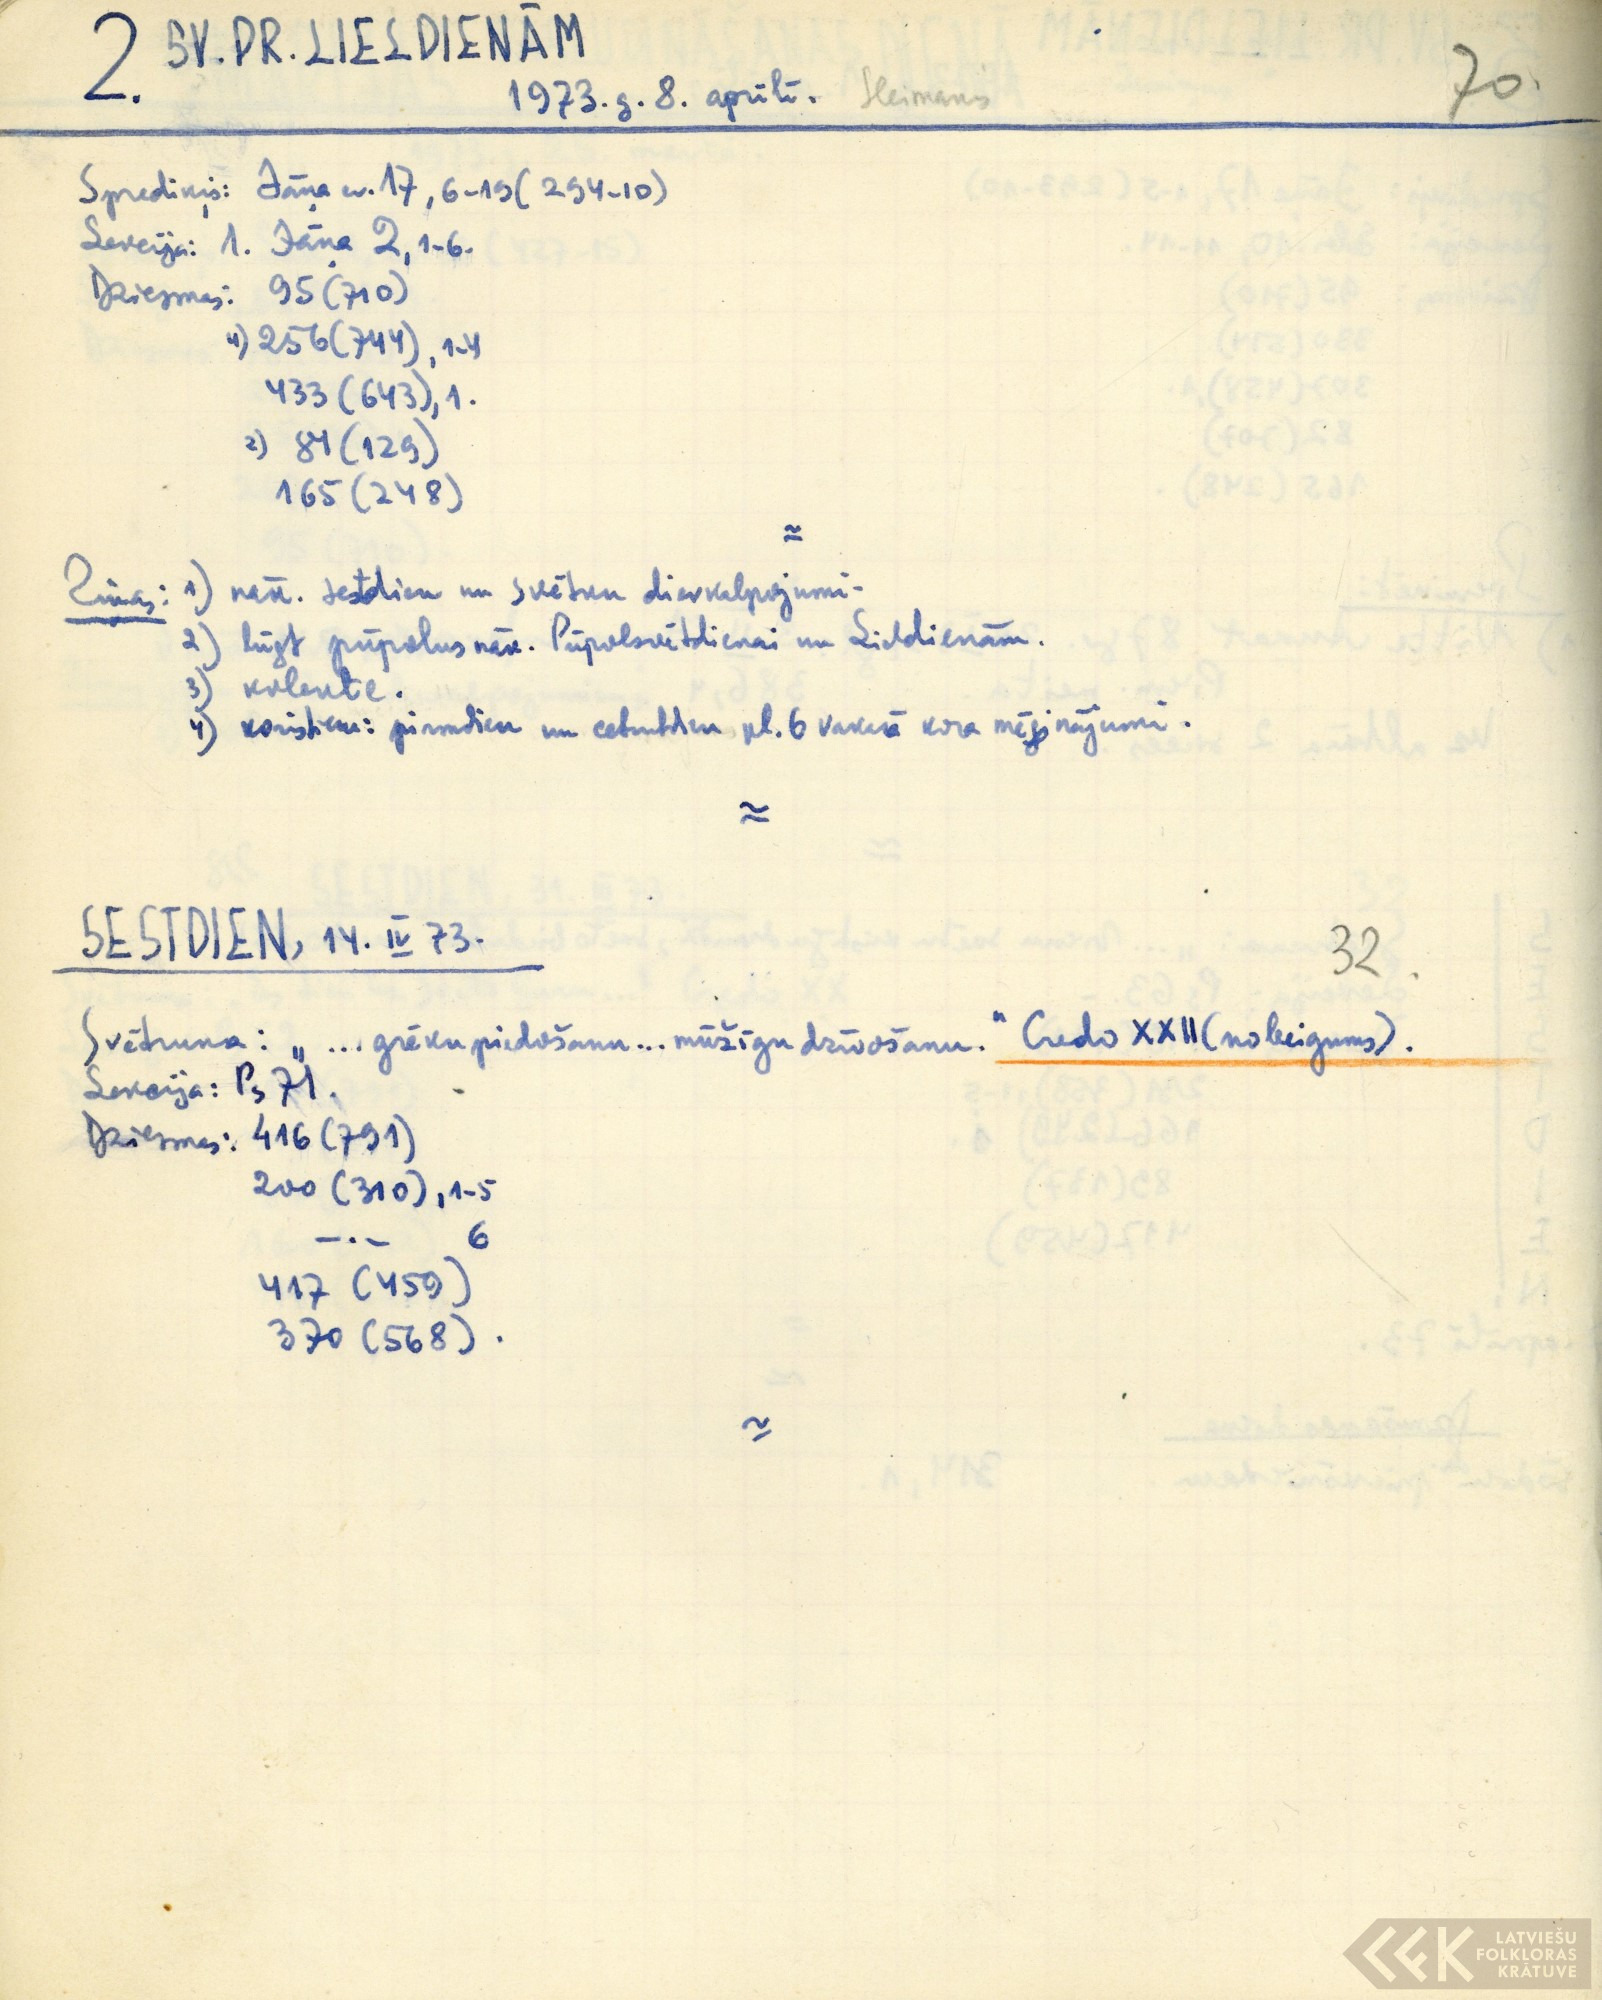 2. SV. PR. LIELDIENĀM
1973. g. 8. aprīlī. Sleimanis 70.
Sprediķis: Jāņa ev. 17, 6-19 (294-10)
Lekcija: 1. Jāņa 2, 1-6.
Dziesmas: 95 (710)
1) 256 (744), 1-4
433 (643), 1.
2) 84 (129)
165 (248)
≈
Ziņas: 1) nāk. sestdien un svētku dievkalpojumi-
2) lūgt pūpolus nāk. Pūpolsvētdienai un Lieldienām.
3) kolekte.
4) koristiem: pirmdien un ceturtdien pl. 6 vakarā kora mēģinājumi.
≈
SESTDIEN, 14. IV 73. 32.
Svētruna: „ ... grēku piedošanu... mūžīgu dzīvošanu." Credo XXII (nobeigums).
Lekcija: Ps 71.
Dziesmas: 416 (791)
200 (310), 1-5
—.— 6
417 (459)
370 (568).
≈
LATVIEŠU
FOLKLORAS
KRĀTUVE